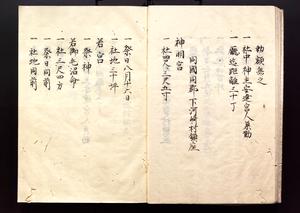 勅願無之
一社中神主安達宮人兼勤
一廳迄距離三十丁
同國同郡下河崎村鎮座
神明宮
一社四尺三尺五寸
一祭日八月十六日
一社地三十坪
若宮
一祭神
若御毛沼命
一社三尺四方
一祭日同前
一社地同前